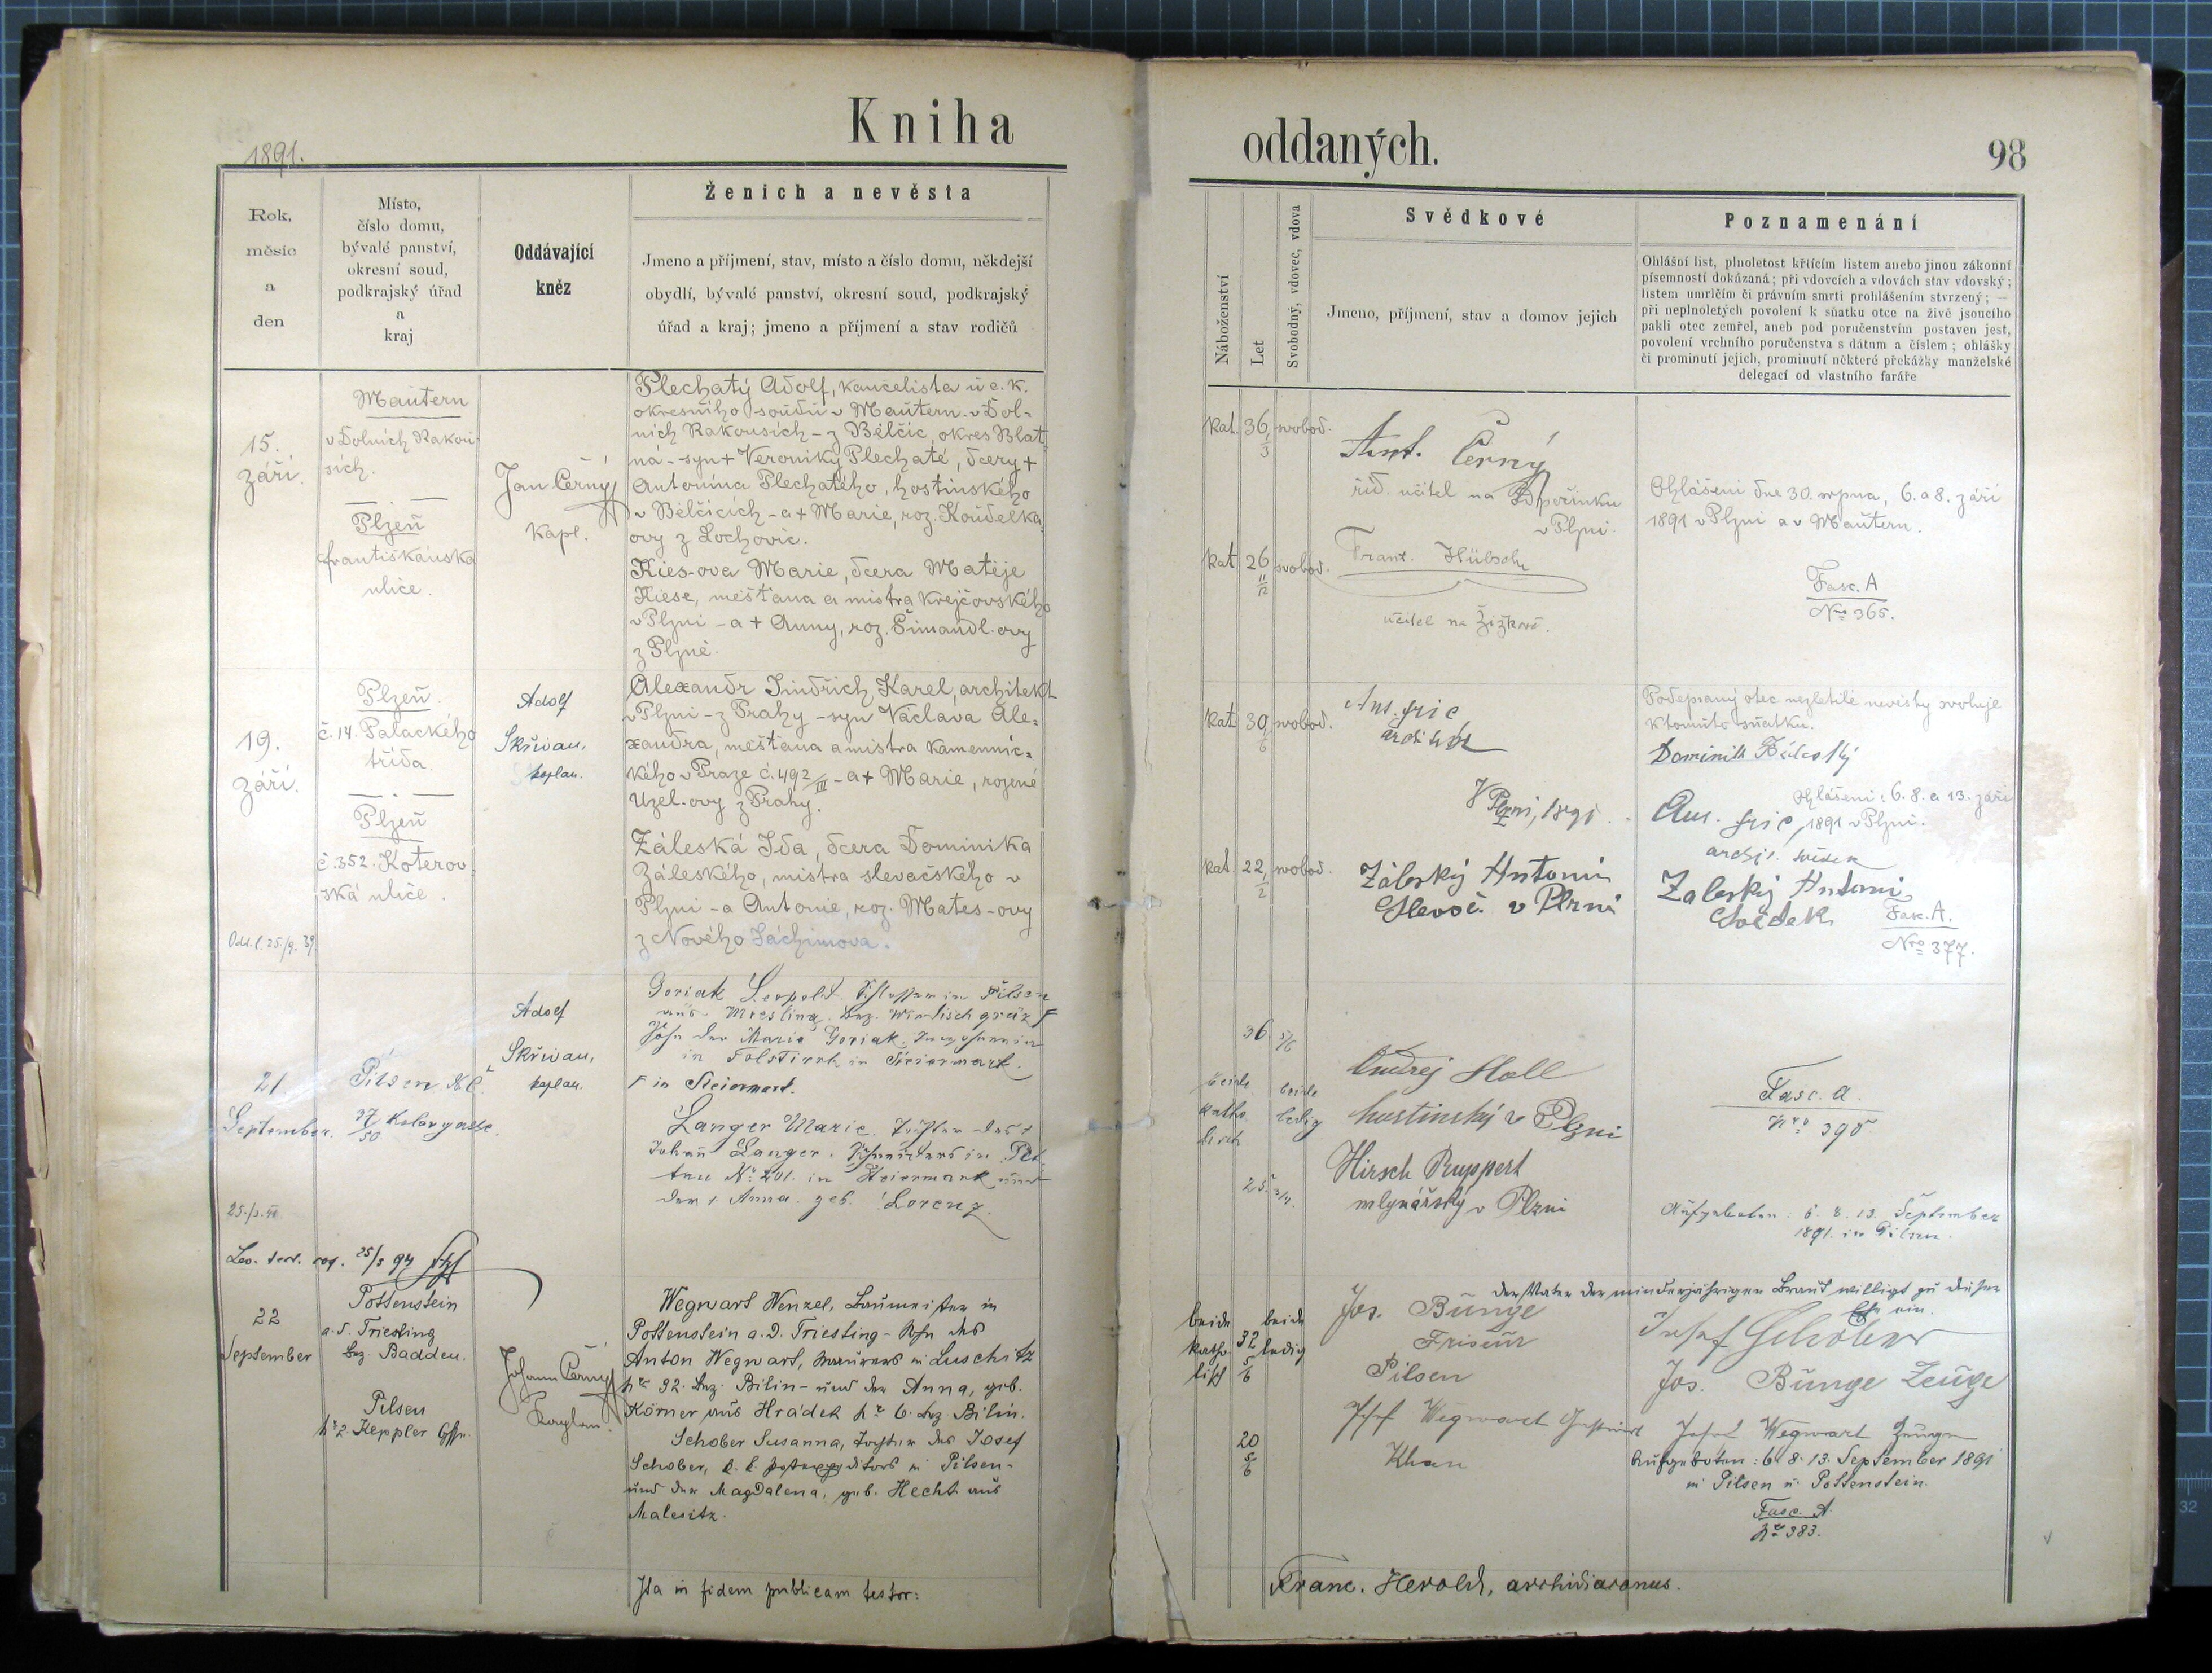 Kniha
1891.
Rok,
měsíc
a
den
Místo,
číslo domu,
bývalé panství,
okresní soud,
podkrajský úřad
a
kraj
Oddávající
kněz
Ženich a nevěsta
Jmeno a příjmení, stav, místo a číslo domu, někdejší
obydlí, bývalé panství, okresní soud, podkrajský
úřad a kraj; jmeno a příjmení a stav rodičů
15.
září.
Mautern
v Dolních Rakou
sích.
Plzeň
františkánska
ulice.
Jan Černý
kapl.
Plechatý Adolf, kancelista u c. k.
okresního soudu v Mautern v Dol-
ních Rakousích - z Bělčic, okres Blat-
ná - syn + Veroniky Plechaté, dcery +
Antonína Plechatého, hostinského
v Bělčicích - a + Marie, roz. Koudelka-
ovy z Lochovic.
Kies-ova Marie, dcera Matěje
Kiese, měšťana a mistra krejčovského
v Plzni - a + Anny, roz. Šimandl-ovy
z Plzně.
19.
září.
Plzeň.
č. 14. Palackého
třída.
Plzeň
č. 352. Koterov-
ská ulice.
Odd. l. 25./9. 39.
Adolf
Skřivan,
kaplan.
Alexandr Jindřich Karel, architekt
v Plzni - z Prahy - syn Václava Ale-
xandra, měšťana a mistra kamennic-
kého v Praze č. 492/III - a + Marie, rozené
Uzel-ovy z Prahy.
Záleská Ida, dcera Dominika
Záleského, mistra slevačského v
Plzni - a Antonie, roz. Mates-ovy
z Nového Jáchimova.
21
September.
Pilsen
37/50
Adolf
Skřivan,
kaplan.
Goriak Leopold. Schlosser in Pilsen
aus Miesling. Bez. Windischgräz F
Sohn der Marie Goriak. Inwohnerin
in Steiermark.
F in Steiermark.
Langer Marie. Tochter des +
Johann Langer. Schneiders in Pet-
tau No. 201. in Steiermark und
der + Anna. geb. Lorenz.
22
September
Pottenstein
a. d. Triesting
Bez. Badden.
Pilsen
No 2. Keppler Gsse.
Johann Černý
Kaplan.
Wegwart Wenzel, Baumeister in
Pottenstein a. d. Triesting - Sohn des
Anton Wegwart, Maurers in Luschitz
No 92. Bez. Bilin - und der Anna, geb.
Körner aus Hrádek No 6. Bez Bilin.
Schober Susanna, Tochter des Josef
Schober, k. k. in Pilsen -
und der Magdalena, geb. Hecht aus
Malesitz.
Ita in fidem publicam testor:
oddaných.
98
Náboženství
Let
Svobodný, vdovec, vdova
Svědkové
Jmeno, příjmení, stav a domov jejich
Poznamenání
Ohlášní list, plnoletost křtícím listem anebo jinou zákonní
písemností dokázaná; při vdovcích a vdovách stav vdovský;
listem umrlčím či právním smrti prohlášením stvrzený; —
při neplnoletých povolení k sňatku otce na živě jsoucího
pakli otec zemřel, aneb pod poručenstvím postaven jest,
povolení vrchního poručenstva s dátum a číslem; ohlášky
či prominutí jejich, prominutí některé překážky manželské
delegací od vlastního faráře
kat. 36 svobod.
Ant. Černý
říd. učitel na
v Plzni.
kat 26 11/12 svobod.
Frant. Hübsch
učitel na Žižkově.
Ohlášeni dne 30. srpna, 6. a 8. září
1891 v Plzni a v Mautern.
Fasc. A
Nro 365.
kat 30 svobod.
V Plzni, 1891.
kat. 22, 1/2 svobod.
Záleský Antonin
Slevač. v Plzni
Podepsaný otec nezletilé nevěsty svoluje
k tomuto sňatku.
Dominik Záleský
Ohlášeni: 6. 8. a 13. září
1891 v Plzni.
Zaleský Antoni
Svědek
Fasc. A.
Nro 377.
36 5/6
beide beide
katho- ledig
lisch
Ondřej Holl
hostinský v Plzni
Hirsch Ruppert
mlynářský v Plzni
25. 3/4.
Fasc. A.
Aufgeboten. 6 8. 13. September
1891. in Pilsen.
beide beide
katho- 32 ledig
lisch 5/6
Jos. Bunge
Friseur
Pilsen
Josef Wegwart
20
5/6
Khan
Der Vater der minderjährigen Braut willigt zu dieser
Ehe ein.
Josef Schober
Jos. Bunge Zeuge
Josef Wegwart Zeuge
Aufgeboten: 6. 8. 13. September 1891
in Pilsen u. Pottenstein.
Fasc. A.
No 383.
Franc. Herold, archidiaconus.